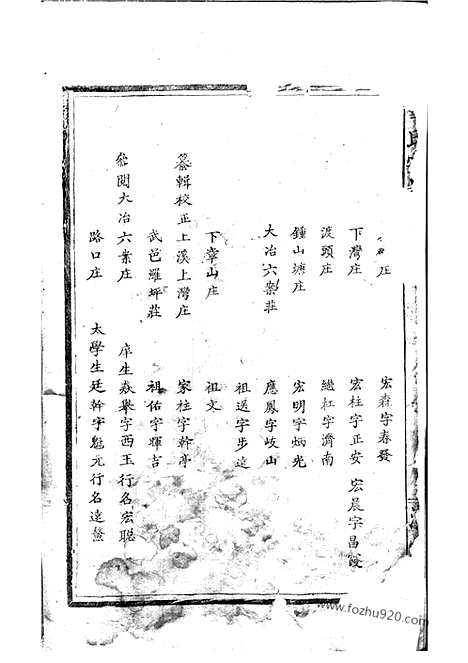 庄 宏森字春發
下灣庄 宏柱字正安 宏晨字昌霞
渡頭庄 繼杠字濟南
鍾山塘庄 宏明字炳光
大冶六案莊 應鳳字岐山
祖送字步遠
下章山庄 祖文
纂輯校正上溪上灣庄 家柱字幹亭
武邑羅坪莊 祖佑字輝吉
參閱大冶六案庄 庠生焱舉字西玉行名宏聰
路口庄 太學生廷幹字魁元行名遠鰲
www.fozhu920.com